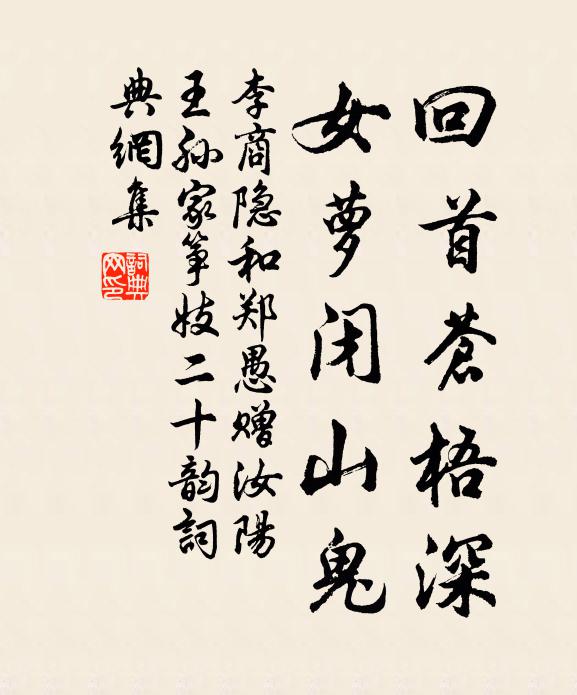 回首苍梧深
女萝闭山鬼
李商隐和郑愚赠汝陽
王孙家筝妓二十韵詞
典網集
詞典网印